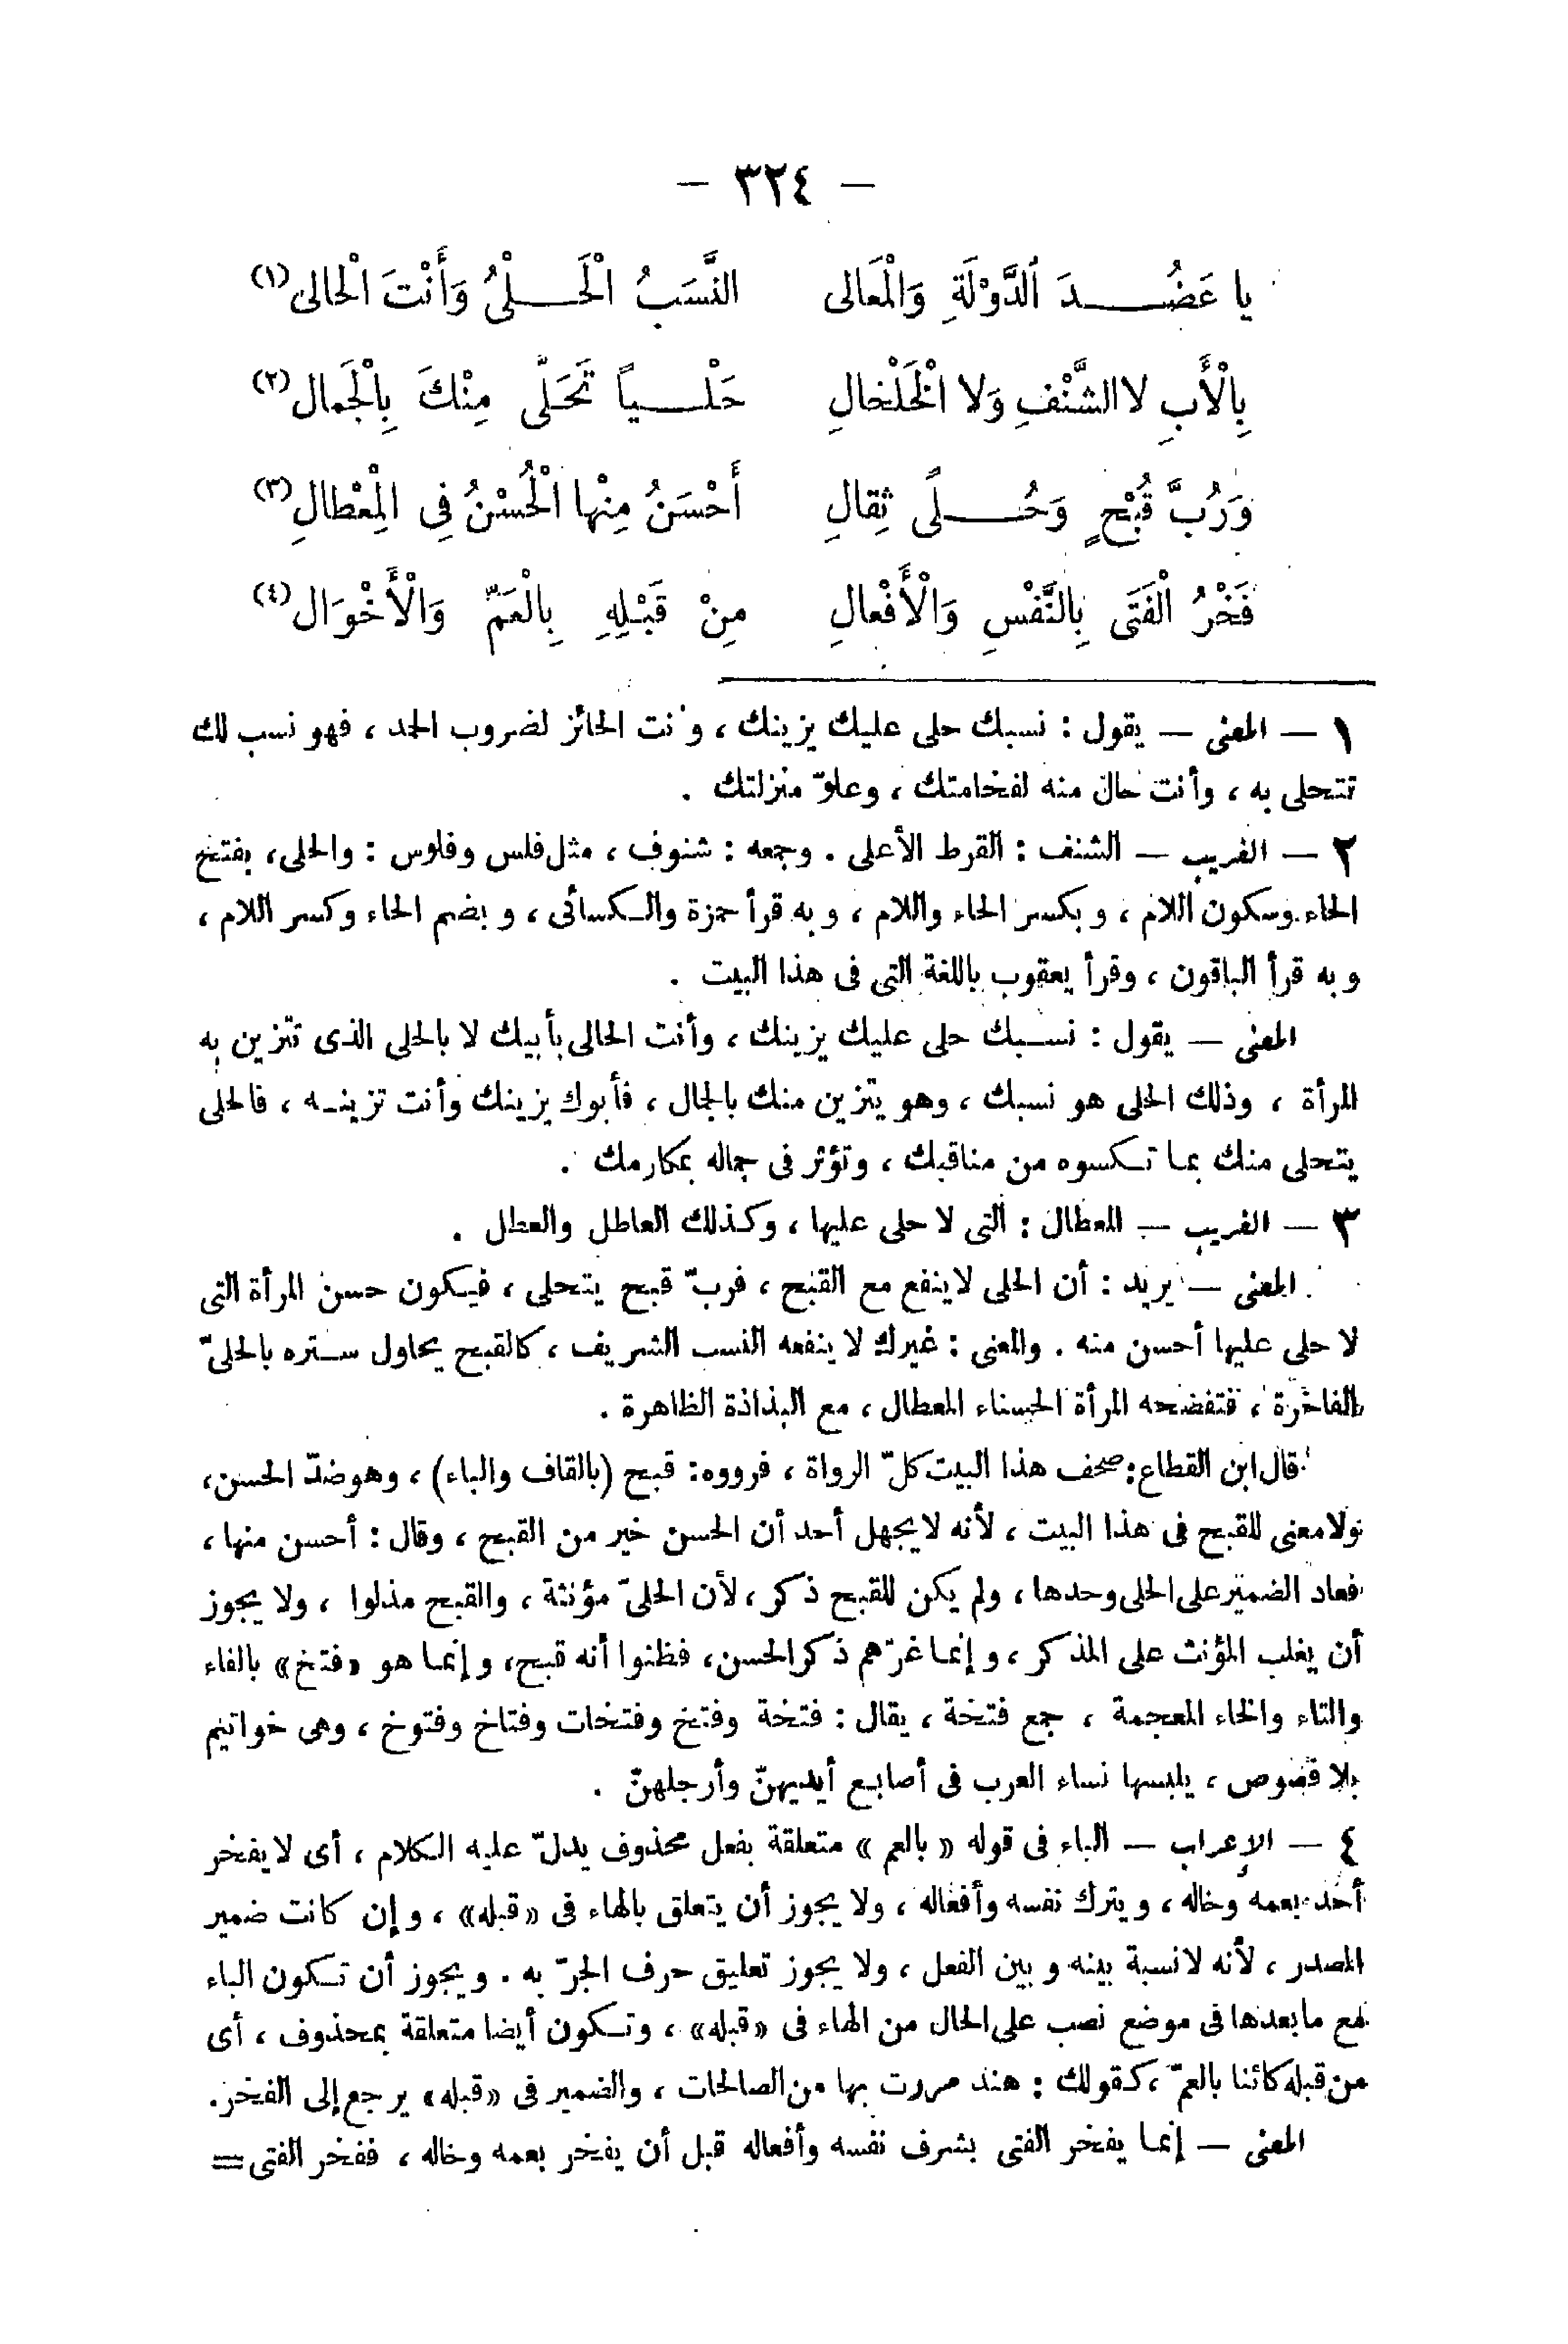 — ٣٢٤ —
يا عَضُـــدَ ٱلدَّوْلَةِ وَالْمَعَالى النَّسَبُ الْحَـــلْىُ وَأَنْتَ الْحالى (١)
بِالْأَبِ لا الشَّنْفِ وَلا الْخَلْخالِ حَلْـــياً تَحَلَّى مِنْكَ بِالْجَمال (٢)
وَرُبَّ قُبْحٍ وَحُـــلًى ثِقالِ أَحْسَنُ مِنْها الْحُسْنُ فِى الْمِعْطالِ (٣)
فَخْرُ الْفَتَى بِالنَّفْسِ وَالْأَفْعالِ مِنْ قَبْلِهِ بِالْعَمّ وَالْأَخْوَال (٤)
١ — المعنى — يقول : نسبك حلى عليك يزينك ، وأنت الحائز لضروب الحمد ، فهو نسب لك
تتحلى به ، وأنت حال منه لفخامتك ، وعلوّ منزلتك .
٢ — الغريب — الشنف : القرط الأعلى . وجمعه : شنوف ، مثل فلس وفلوس : والحلى ، بفتح
الحاء وسكون اللام ، وبكسر الحاء واللام ، وبه قرأ حمزة والكسائى ، وبضم الحاء وكسر اللام ،
وبه قرأ الباقون ، وقرأ يعقوب باللغة التى فى هذا البيت .
المعنى — يقول : نسبك حلى عليك يزينك ، وأنت الحالى بأبيك لا بالحلى الذى تتزين به
المرأة ، وذلك الحلى هو نسبك ، وهو يتزين منك بالجمال ، فأبوك يزينك وأنت تزينه ، فالحلى
يتحلى منك بما تكسوه من مناقبك ، وتؤثر فى جماله بمكارمك .
٣ — الغريب — المعطال : التى لا حلى عليها ، وكذلك العاطل والعطل .
المعنى — يريد : أن الحلى لا ينفع مع القبح ، فربّ قبح يتحلى ، فيكون حسن المرأة التى
لا حلى عليها أحسن منه . والمعنى : غيرك لا ينفعه النسب الشريف ، كالقبح يحاول ستره بالحلىّ
الفاخرة ، فتفضحه المرأة الحسناء المعطال ، مع البذاذة الظاهرة .
قال ابن القطاع : صحف هذا البيت كلّ الرواة ، فرووه : قبح (بالقاف والباء) ، وهو ضدّ الحسن ،
ولا معنى للقبح فى هذا البيت ، لأنه لا يجهل أحد أن الحسن خير من القبح ، وقال : أحسن منها ،
فعاد الضمير على الحلى وحدها ، ولم يكن للقبح ذكر ، لأن الحلىّ مؤنثة ، والقبح مذلوا ، ولا يجوز
أن يغلب المؤنث على المذكر ، وإنما غرّهم ذكر الحسن ، فظنوا أنه قبح ، وإنما هو «فتخ» بالفاء
والتاء والخاء المعجمة ، جمع فتخة ، يقال : فتخة وفتخ وفتخات وفتاخ وفتوخ ، وهى خواتيم
بلا فصوص ، يلبسها نساء العرب فى أصابع أيديهنّ وأرجلهنّ .
٤ — الإعراب — الباء فى قوله « بالعم » متعلقة بفعل محذوف يدلّ عليه الكلام ، أى لا يفخر
أحد بعمه وخاله ، ويترك نفسه وأفعاله ، ولا يجوز أن يتعلق بالهاء فى «قبله» ، وإن كانت ضمير
المصدر ، لأنه لا نسبة بينه وبين الفعل ، ولا يجوز تعليق حرف الجرّ به . ويجوز أن تكون الباء
مع ما بعدها فى موضع نصب على الحال من الهاء فى «قبله» ، وتكون أيضا متعلقة بمحذوف ، أى
من قبله كائنا بالعمّ ، كقولك : هند مررت بها من الصالحات ، والضمير فى «قبله» يرجع إلى الفخر.
المعنى — إنما يفخر الفتى بشرف نفسه وأفعاله قبل أن يفخر بعمه وخاله ، ففخر الفتى =